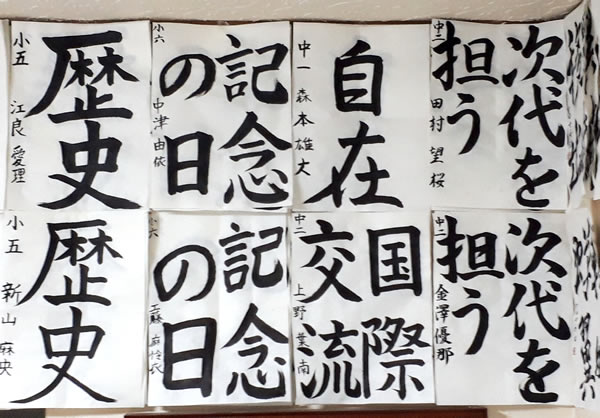 次代を
担う
中二 田村望桜
自在
中一 森本雄大
記念
の日
小六 中津由依
歴史
小五 江良愛理
次代を
担う
中二 金澤優那
国際
交流
中二 上野
記念
の日
小六 工藤
歴史
小五 新山麻央